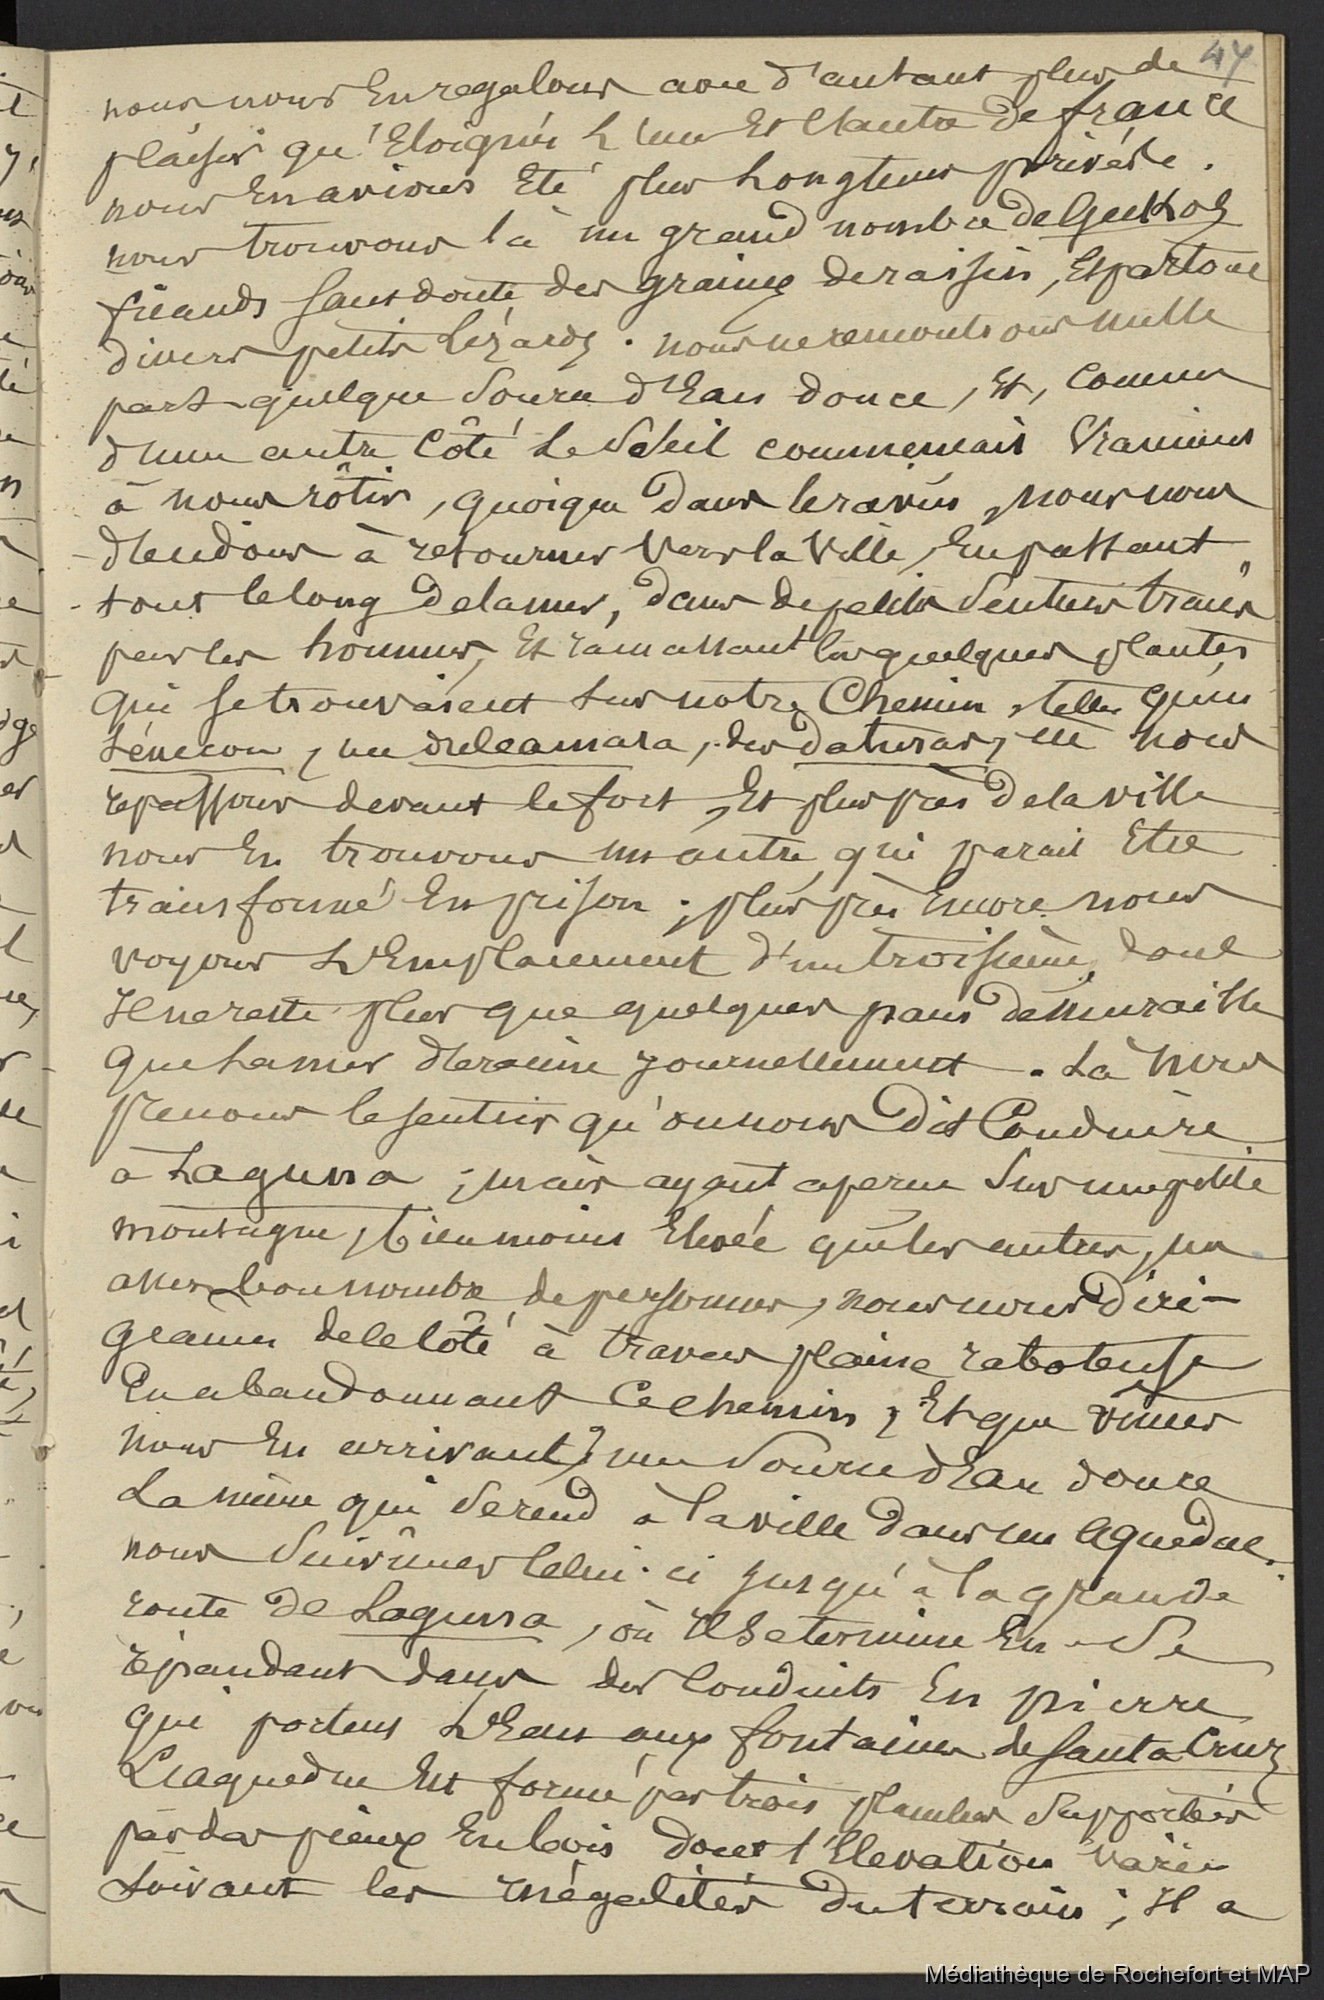 47
nous nous En regalons avec d'autant plus de
plaisir qu'Eloignés L'un Et l'autre De france
nous En avions Eté plus Longtems privés.
nous trouvons là un grand nombre de Geckos
friands sans doute des grains de raisin, Et partout
divers petits Lézards. nous ne rencontrons nulle
part quelque source d'Eau douce, Et, comme
d'un autre Côté Le soleil commençait Vraiment
à nous rôtir, quoique Dans le ravin, nous nous
décidons à retourner Vers la Ville, En passant
tout le long de la mer, dans de petits sentiers tracés
par les hommes, Et ramassant les quelques plantes
qui se trouvaient sur notre Chemin, telles qu'un
Séneçon, un dulcamara, des daturas, etc nous
repassons devant le fort, Et plus près de la ville
nous En trouvons un autre, qui parait Etre
transformé En prison ; plus près Encore nous
voyons L'Emplacement d'un troisième, dont
Il ne reste plus que quelques pans de muraille
que La mer déracine journellement. Là nous
prenons le sentier qu'on nous Dit Conduire
à Laguna ; mais ayant aperçu sur une petite
montagne, bien moins Elevée que les autres, un
assez bon nombre de personnes, nous nous diri-
geames de ce côté à travers plaine raboteuse
En abandonnant Ce chemin, Et que vîmes
nous En arrivant? une source d'Eau douce
La même qui se rend à la ville dans un aqueduc.
nous suivîmes celui-ci jusqu'à la grande
route de Laguna, où Il se termine En se
répandant dans des Conduits En pierre
qui portent L'Eau aux fontaines de Santa Cruz
L'aqueduc Est formé par trois planches supportées
par des pieux En bois dont l'Elevation varie
suivant les Inégalités du terrain ; Il a
Médiathèque de Rochefort et MAP